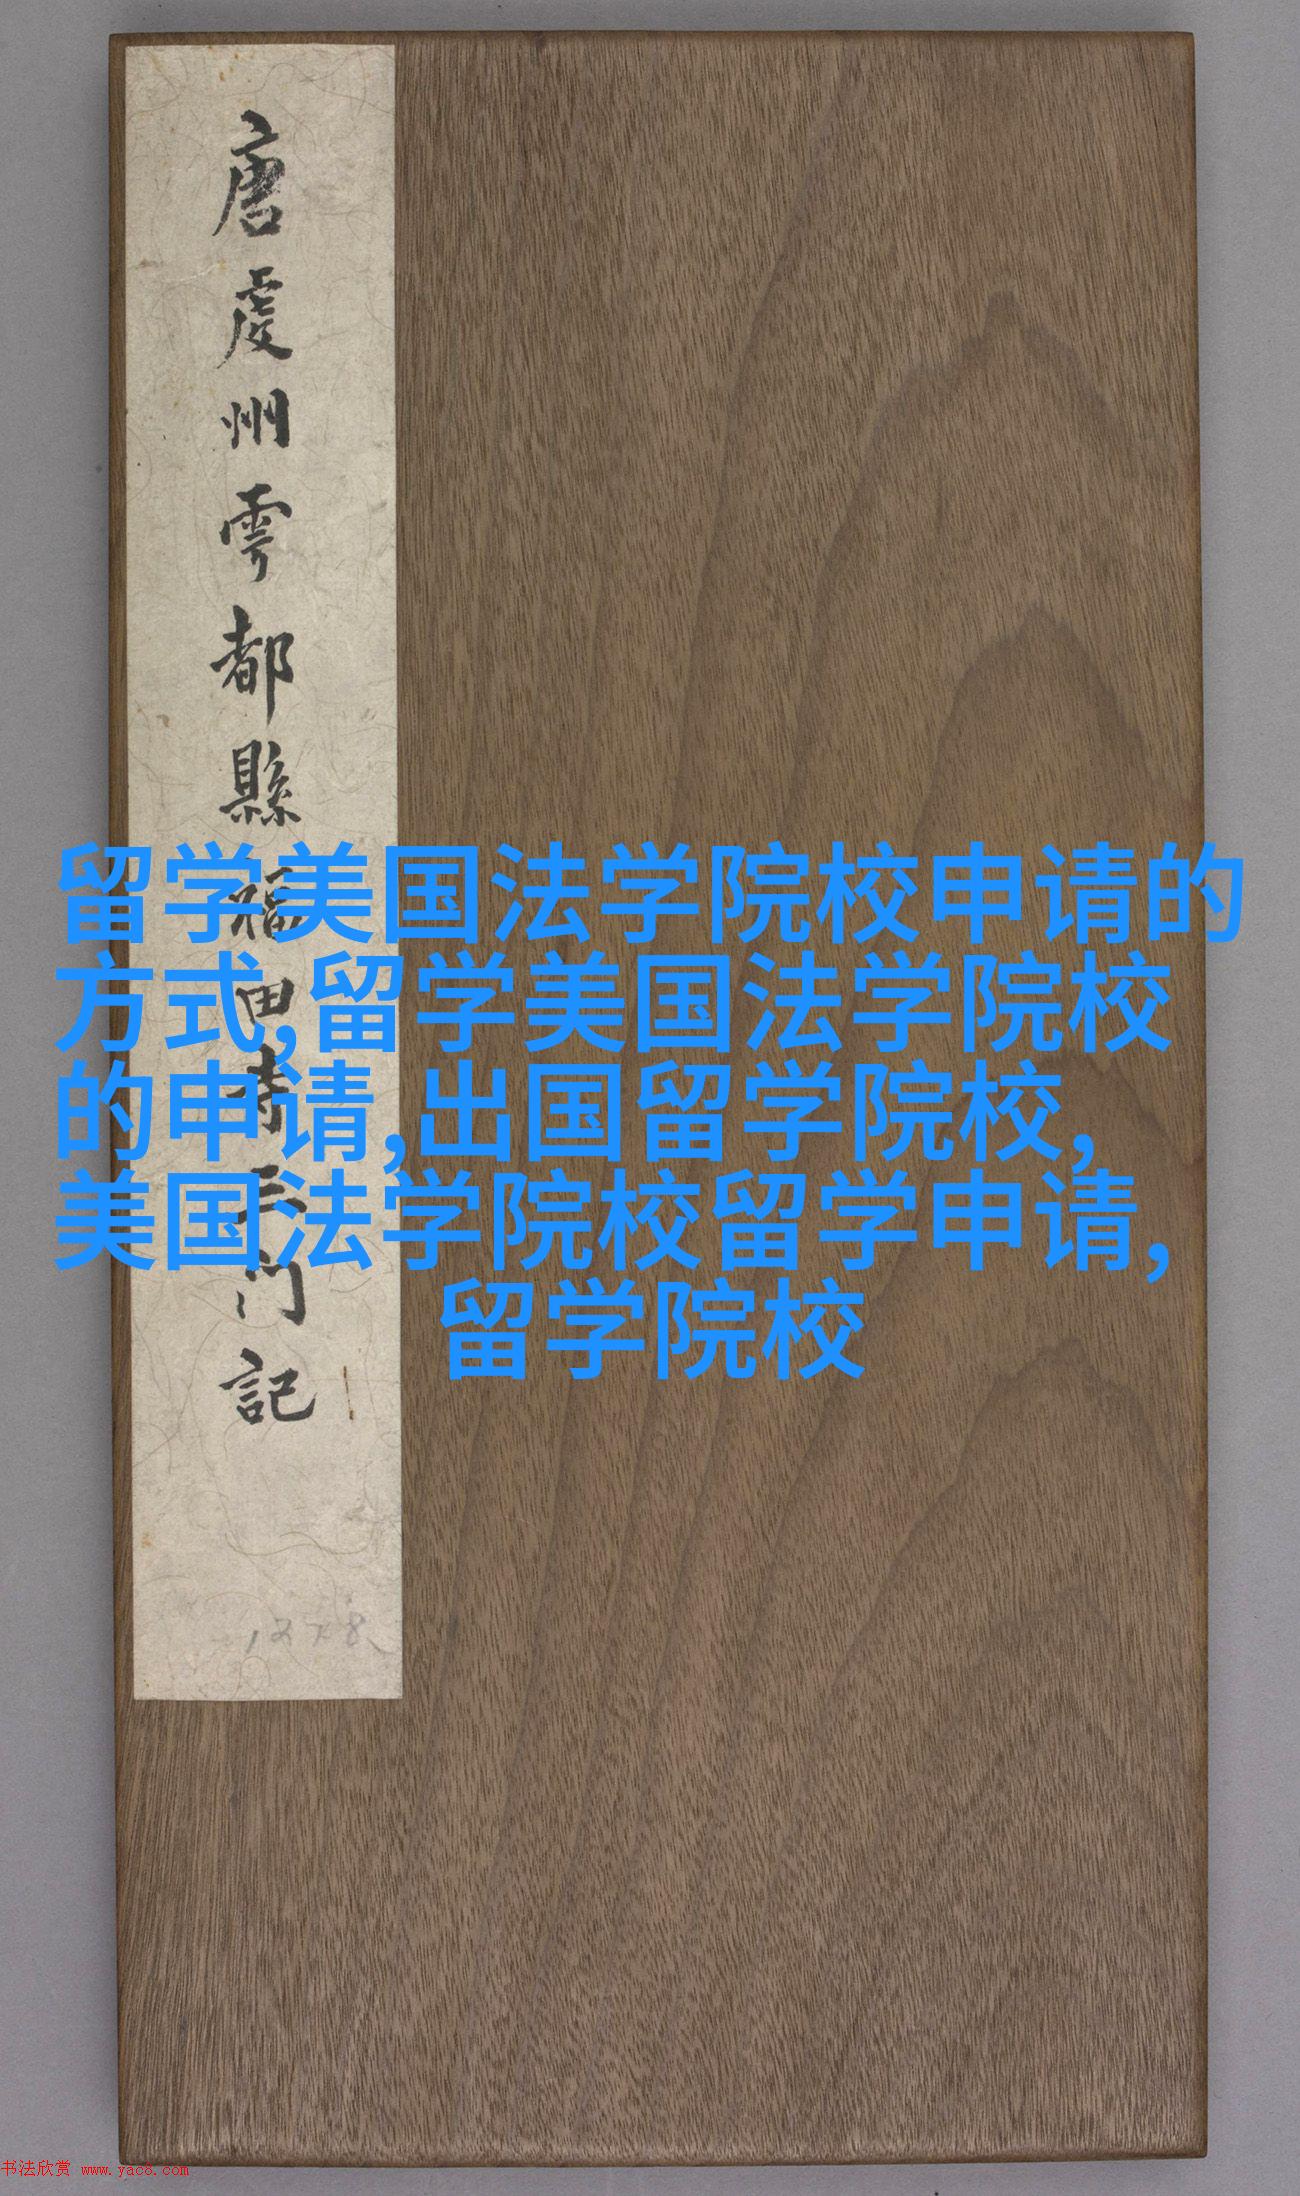 唐虔州雩都縣福田寺三門記
留学美国法学院校申请的
方式,留学美国法学院校
的申请,出国留学院校,
美国法学院校留学申请,
留学院校
书法欣赏 www.yac8.com